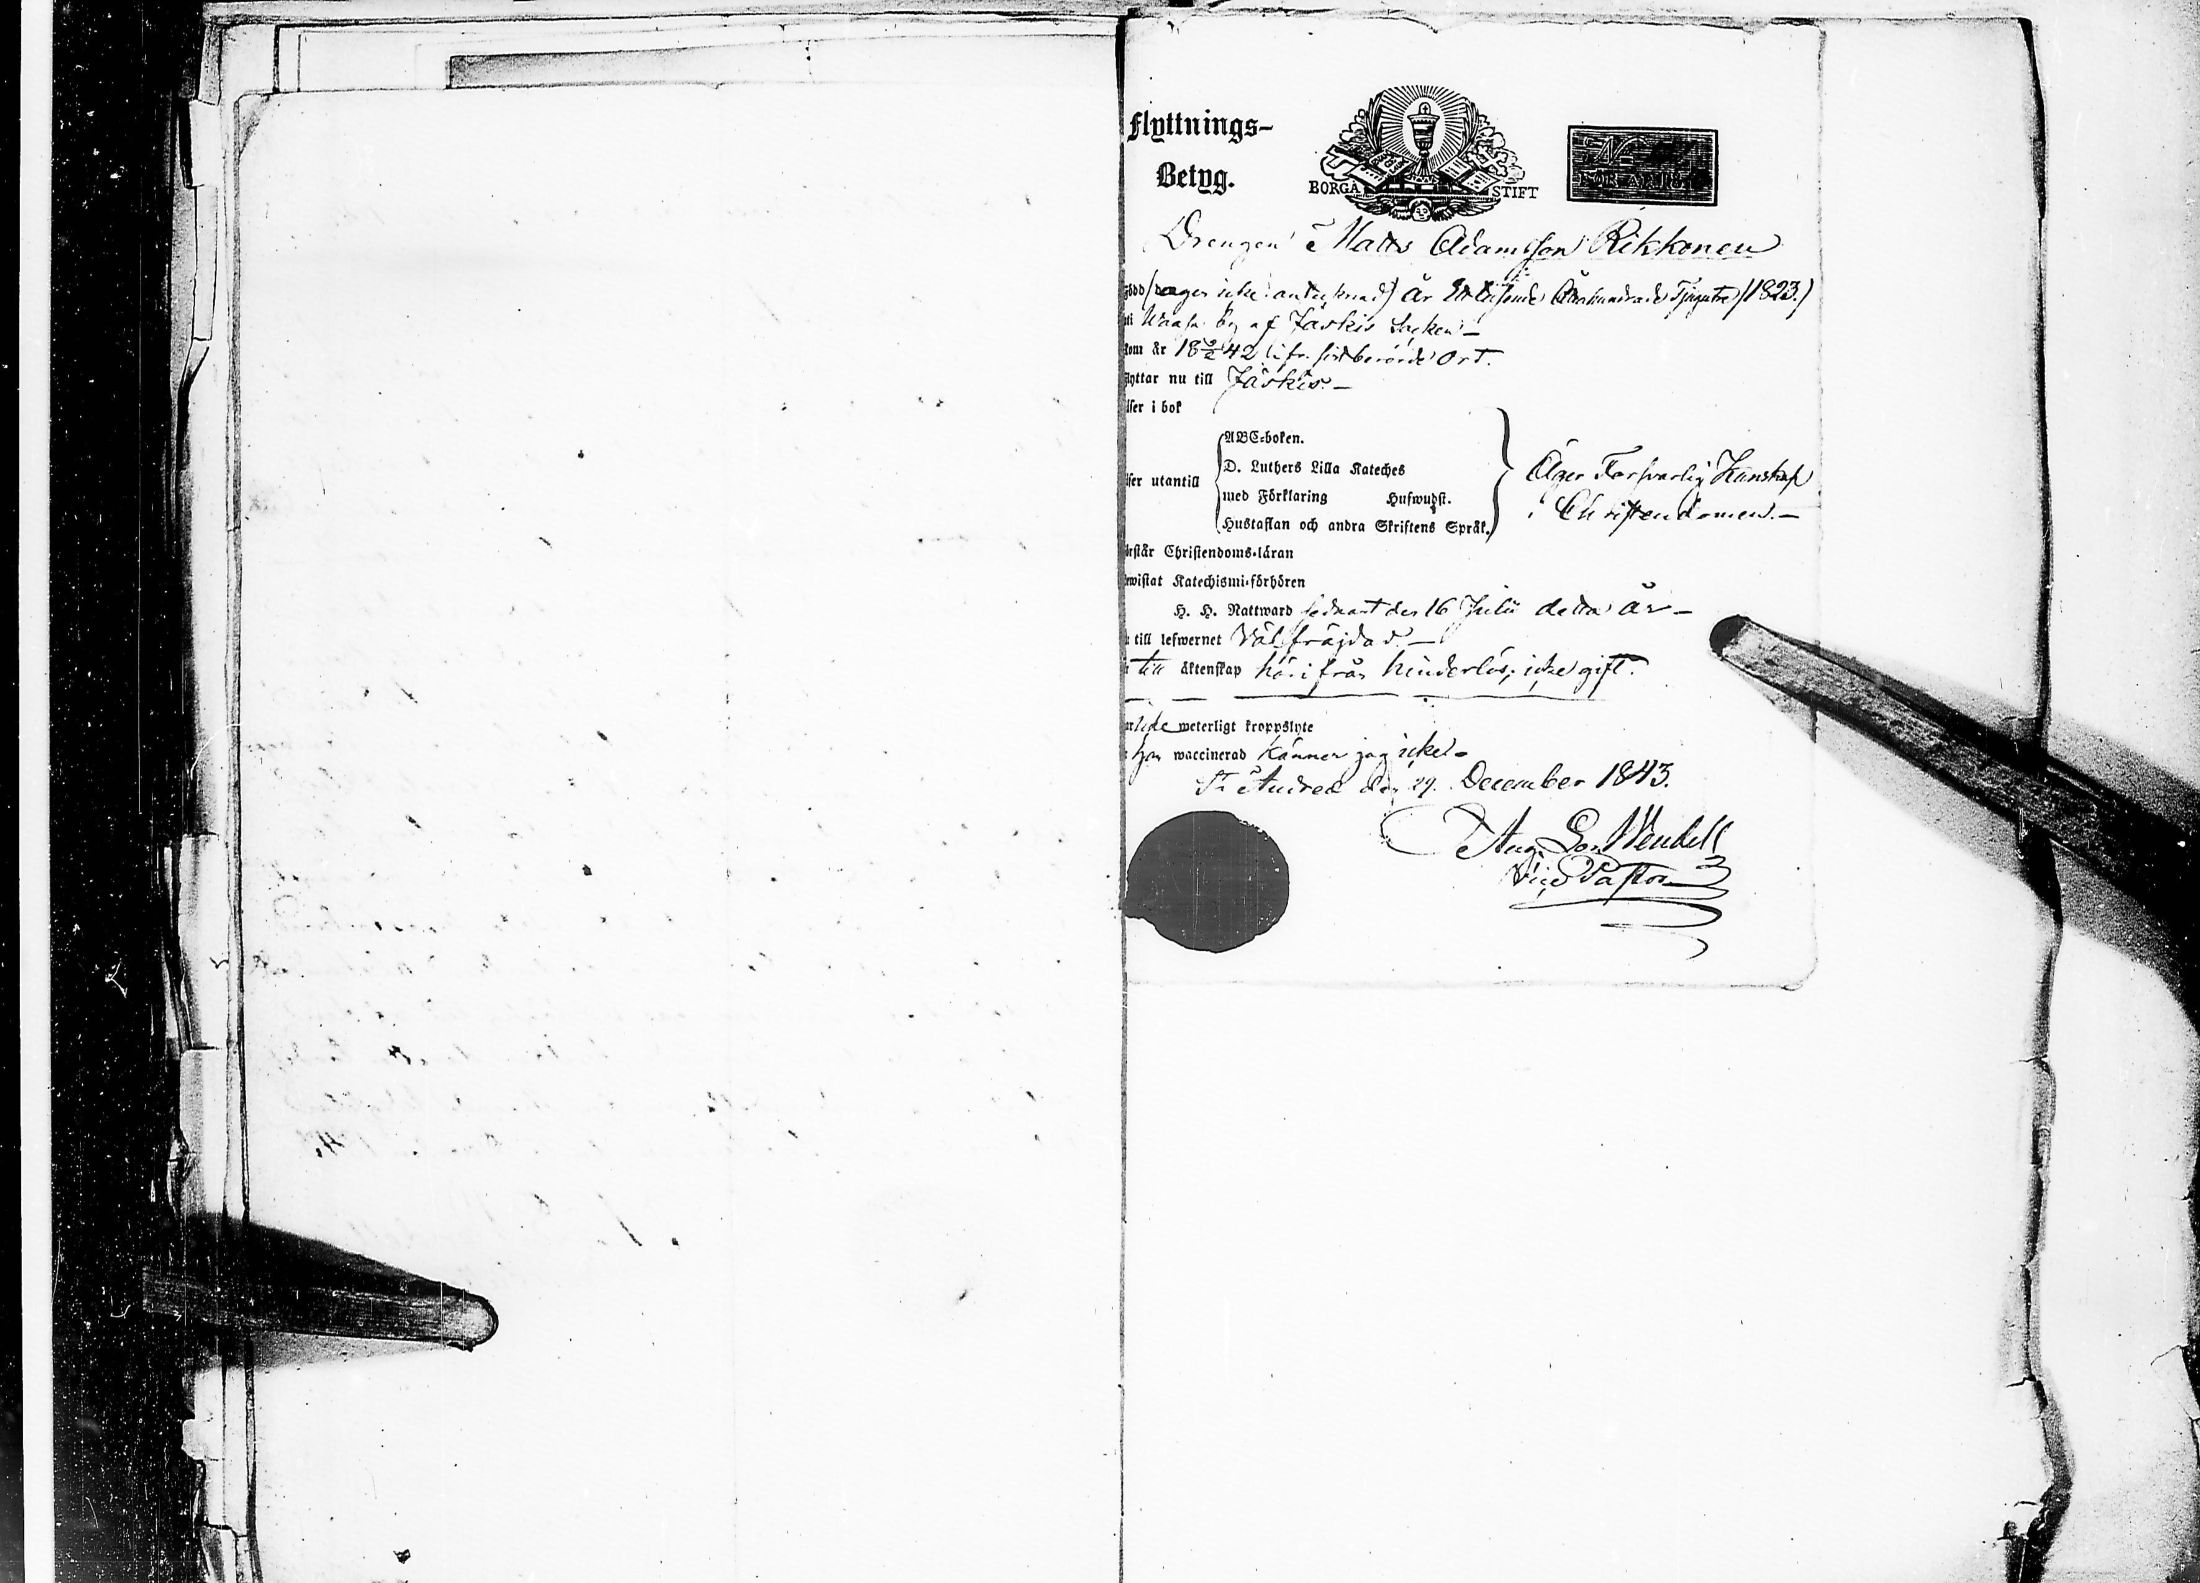 Flyttnings-
Betyg.
BORGÅ STIFT
N
FÖR ÅR 18
Drengen Matts Adamsson Rikkonen
född (dagen icke antecknad) år Ett tusende Åttahundrade Tjugutre (1823.)
uti by af Jäskis Socken –
kom år 18 42 ifr. sistberörde Ort.
flyttar nu till Jäskis. –
läser i bok
läser utantill
ABC-boken.
D. Luthers Lilla Kateches
med Förklaring Hufwudst.
Hustaflan och andra Skriftens Språk.
Äger Forsvarlig Kunskap
i Christendomen. –
rstår Christendoms-läran
ewistat Katechismi-förhören
H. H. Nattward sednast den 16 Julii detta år –
till lefwernet Välfräjdad –
till äktenskap härifrån hinderlös, icke gift.
weterligt kroppslyte
waccinerad känner jag icke –
St Andreæ den 29. December 1843.
Aug. Wendell
Vice Pastor